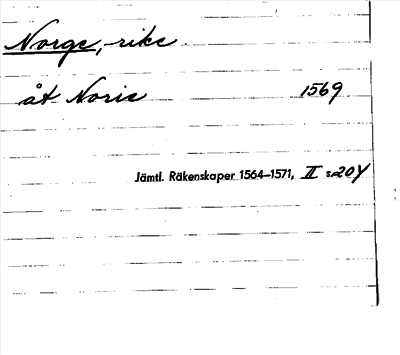 Norge, rike
åt Norie 1569
Jämtl. Räkenskaper 1564–1571, II s.204